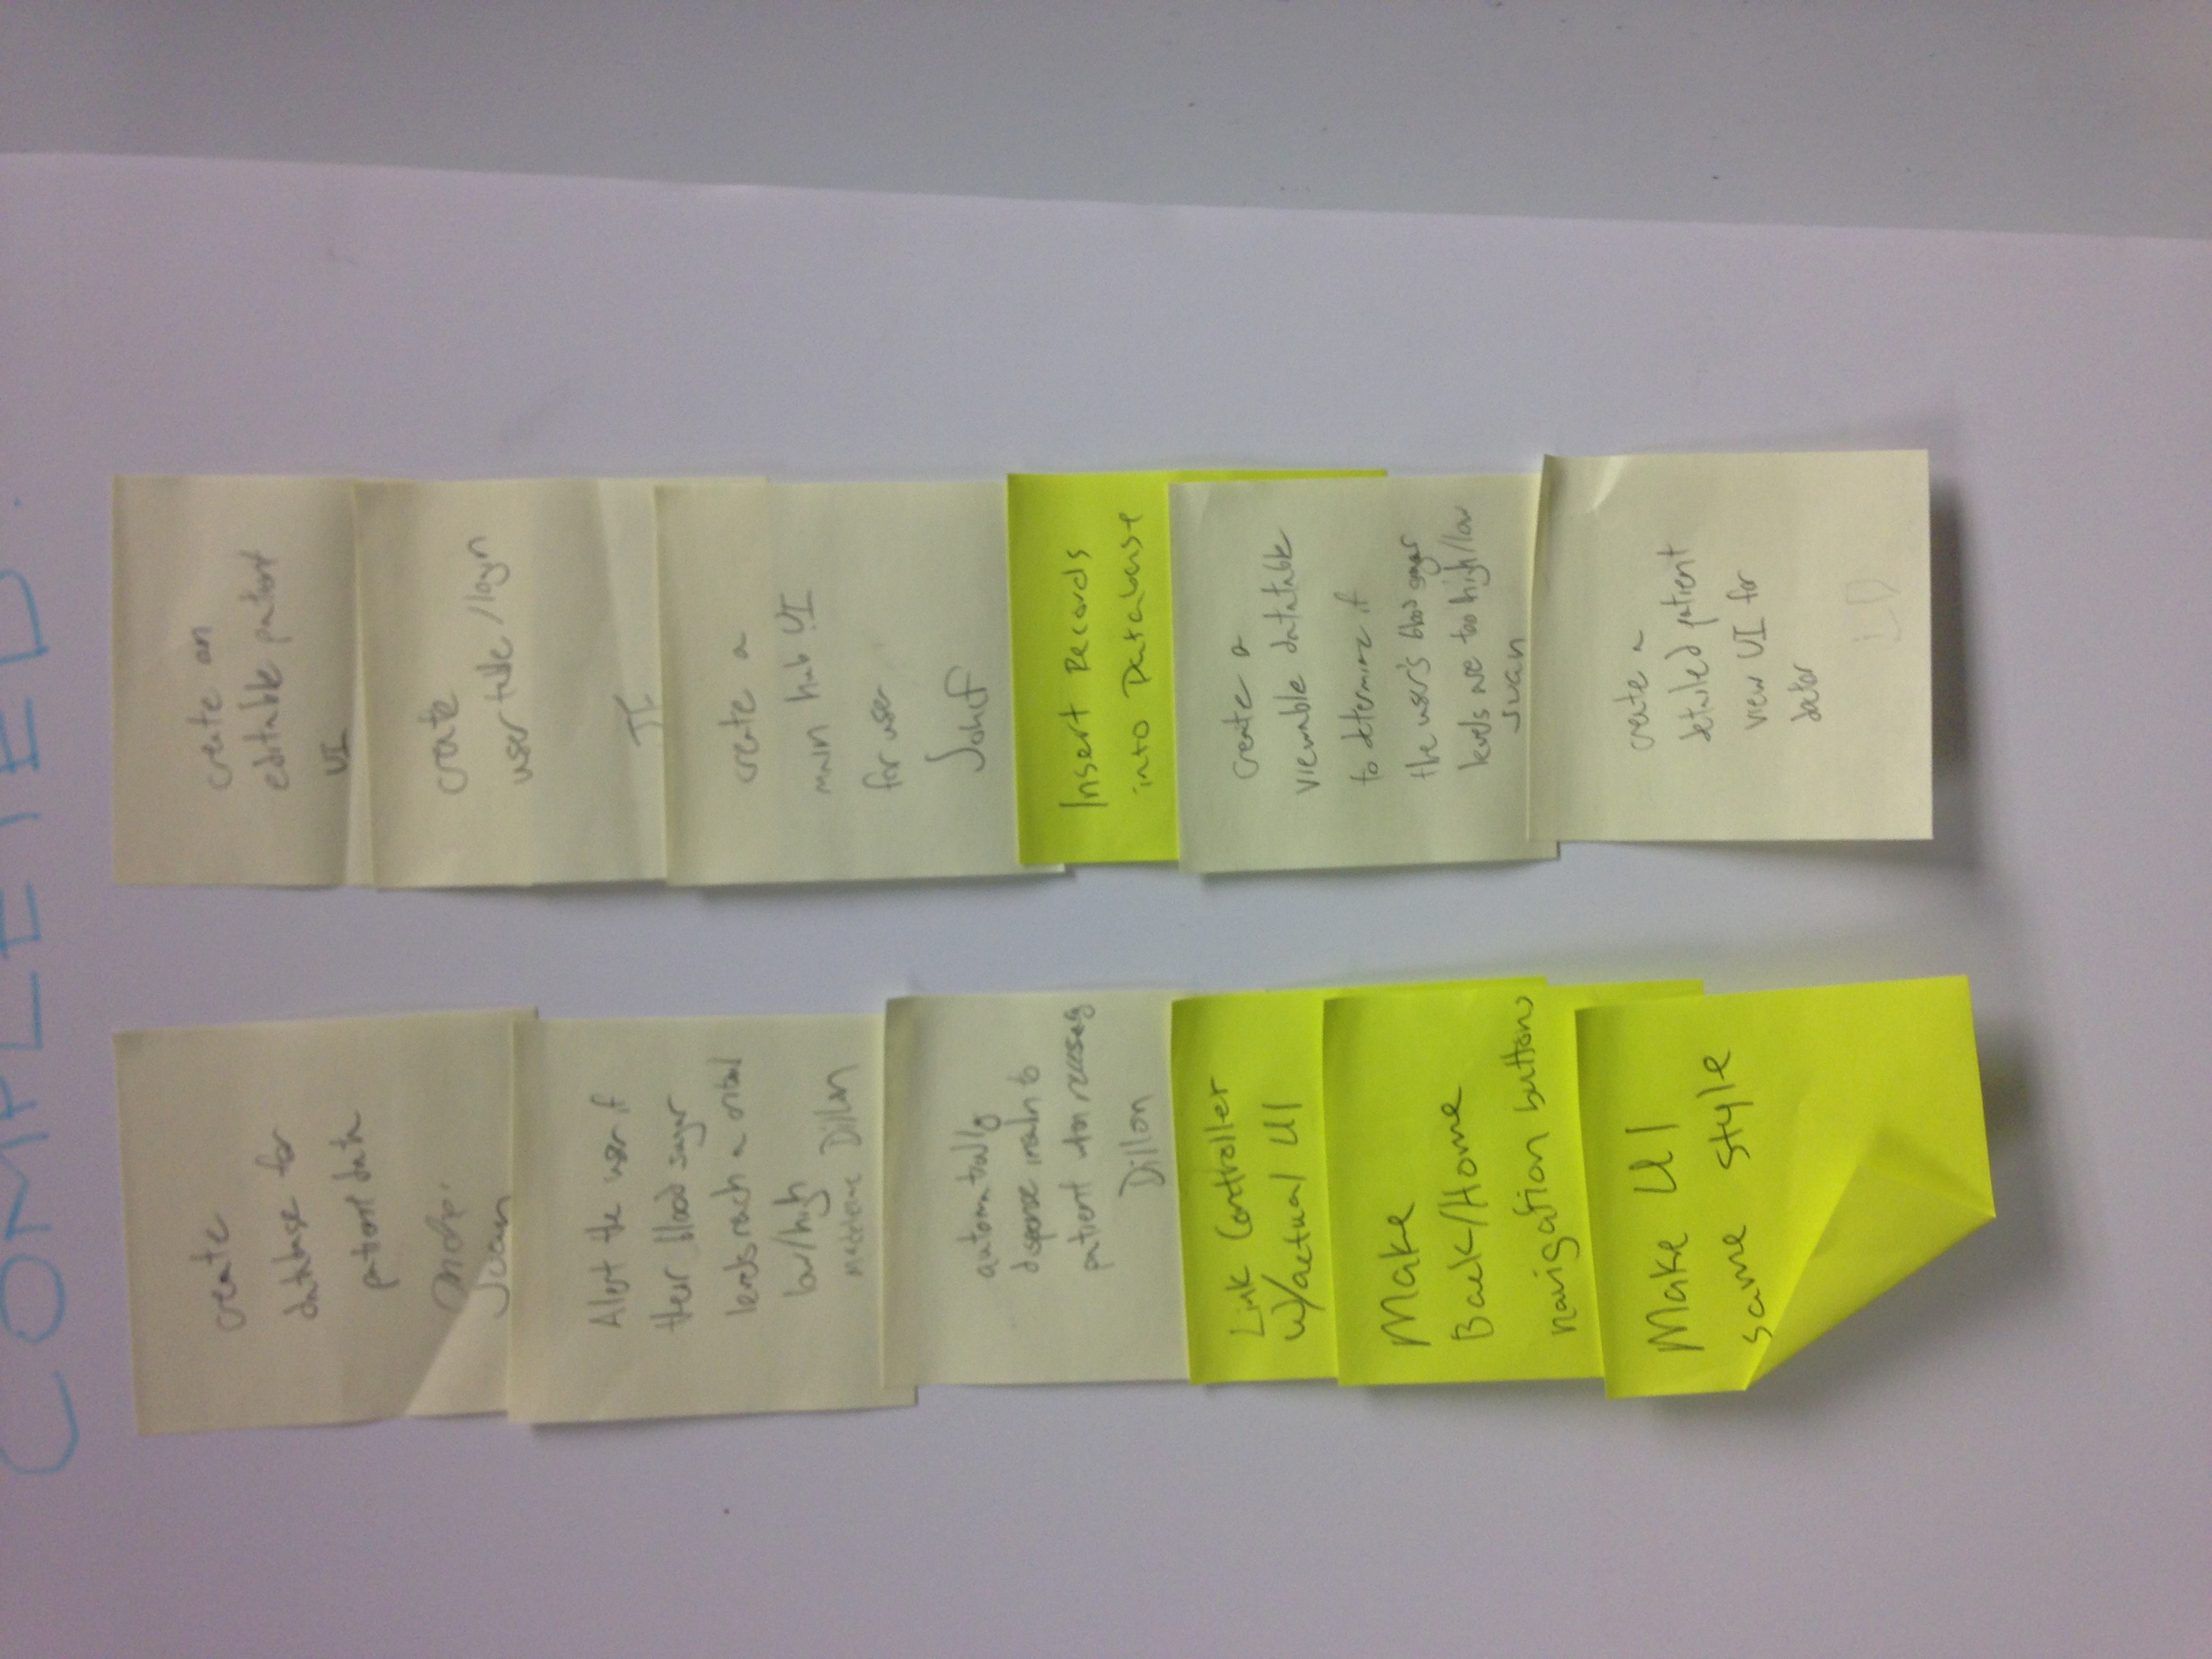 COMPLETED:
create
database for
patient data
Juan
Alert the user if
their blood sugar
levels reach a critical
low/high
Madeleine Dillon
automatically
dispense insulin to
patient when necessary
Dillon
Link Controller
w/actual UI
Make
Back/Home
navigation buttons
Make UI
same style
create an
editable patient
UI
create
user table/login
JF
create a
main hub UI
for user
Insert Records
into Database
create a
viewable datatable
to determine if
the user's blood sugar
levels are too high/low
Juan
create a
detailed patient
view UI for
doctor
LD